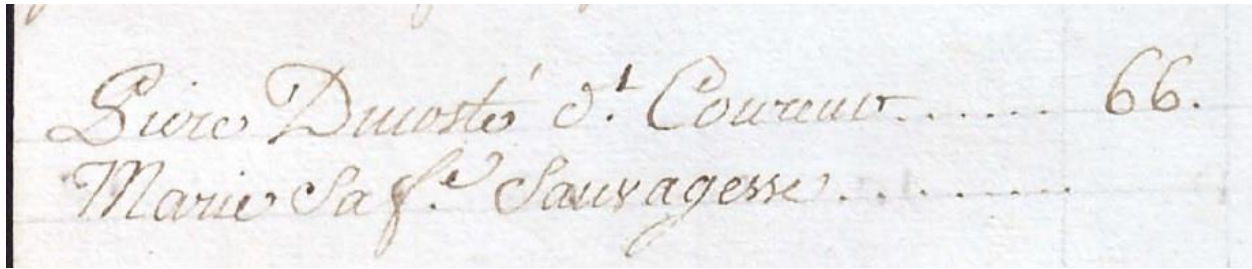 Piere Ducosté d.t Coureur ...... 66.
Marie Sa f.e Sauvagesse .........